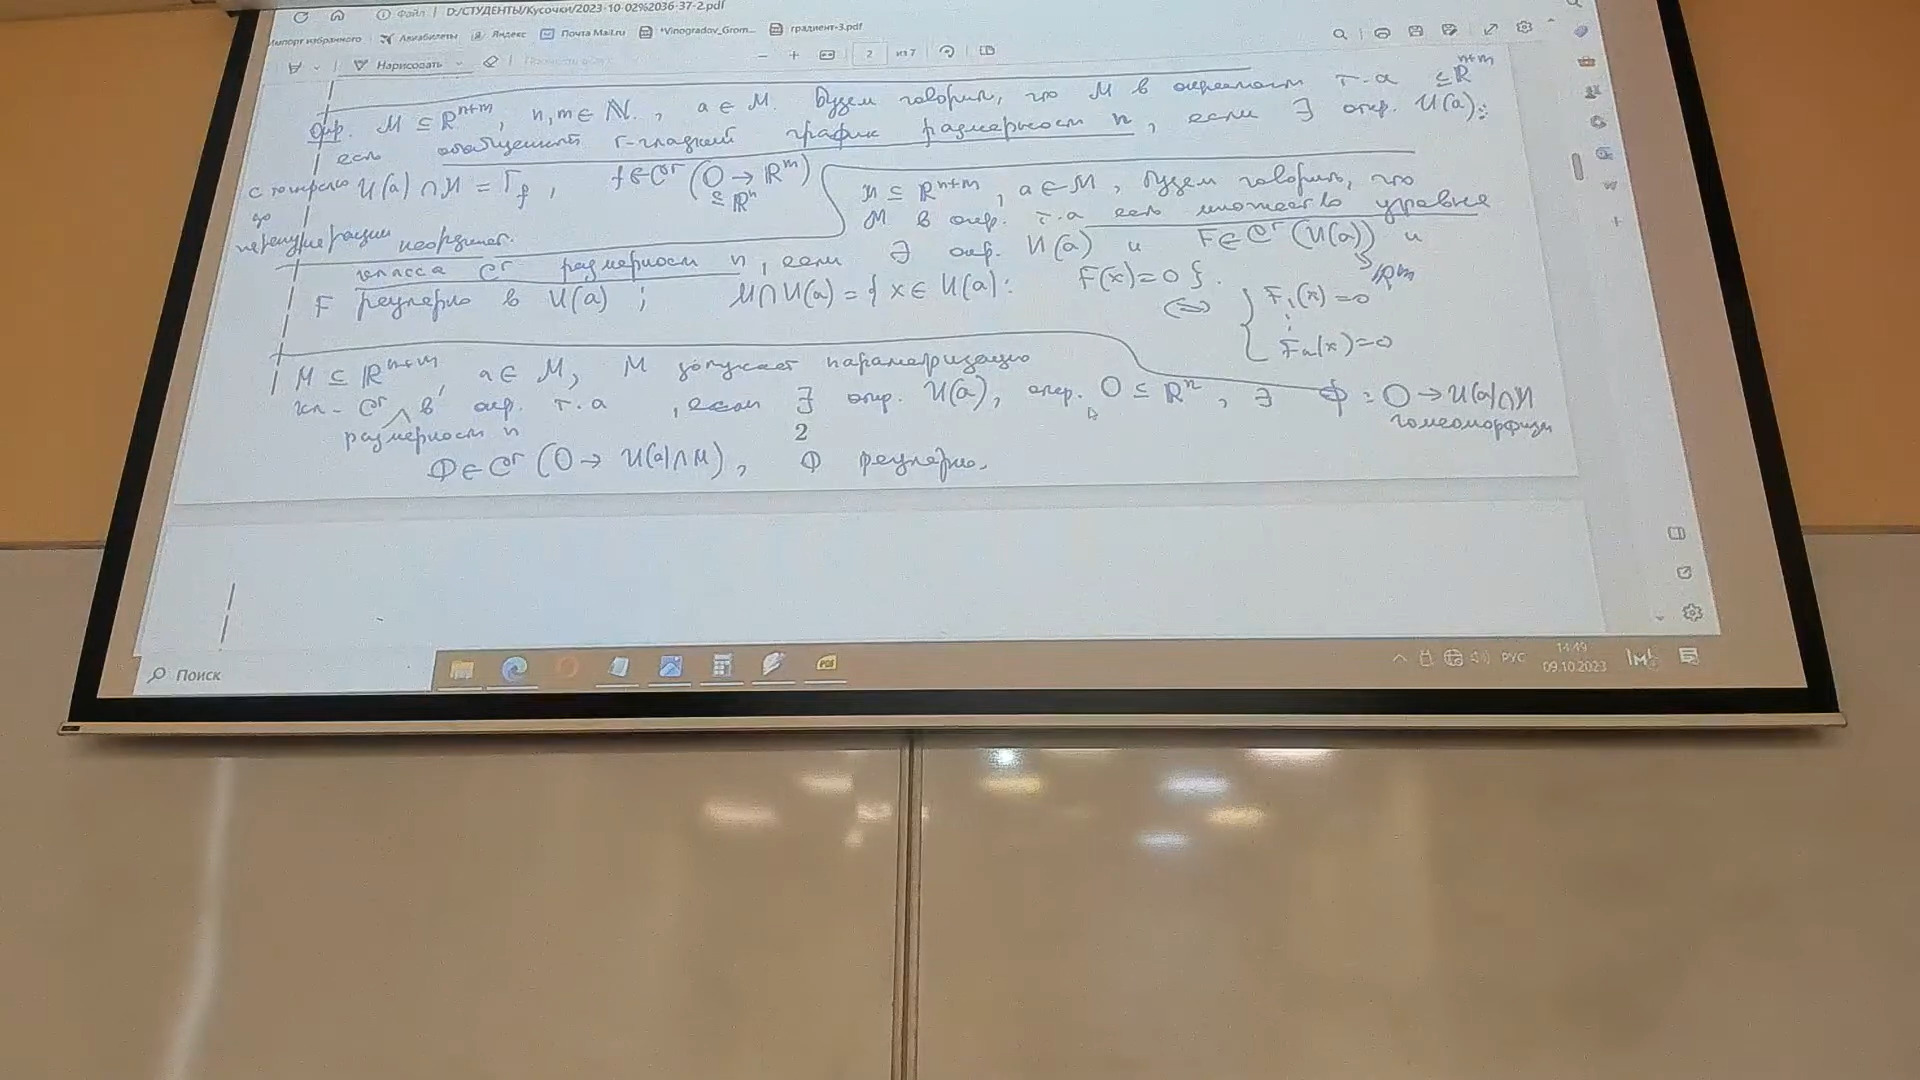 Файл | D:/СТУДЕНТЫ/Кусочки/2023-10-02%2036-37-2.pdf
Импорт избранного Авиабилеты Яндекс Почта Mail.ru "Vinogradov_Grom... градиент-3.pdf
Нарисовать 2 из 7
Опр. M ⊆ ℝⁿ⁺ᵐ, n,m ∈ ℕ, a ∈ M. Будем говорить, что M в окрестности т. a ⊆ ℝⁿ⁺ᵐ
есть обобщенный r-гладкий график размерности n, если ∃ окр. U(a):
с точностью до перенумерации координат. U(a) ∩ M = Γ_f, f ∈ Cʳ (O → ℝᵐ)
⊆ ℝⁿ
M ⊆ ℝⁿ⁺ᵐ, a ∈ M, будем говорить, что
M в окр. т. a есть множество уровня
класса Cʳ размерности n, если ∃ окр. U(a) и F ∈ Cʳ (U(a)) и
ℝᵐ
F регулярно в U(a); M ∩ U(a) = { x ∈ U(a): F(x)=0 }.
⇔ { F₁(x)=0
⋮
Fₘ(x)=0
M ⊆ ℝⁿ⁺ᵐ, a ∈ M, M допускает параметризацию
кл. Cʳ размерности n в окр. т. a, если ∃ окр. U(a), откр. O ⊆ ℝⁿ, ∃ Φ: O → U(a)∩M
гомеоморфизм
2
Φ ∈ Cʳ (O → U(a)∩M), Φ регулярно.
Поиск
РУС
14:49
09.10.2023